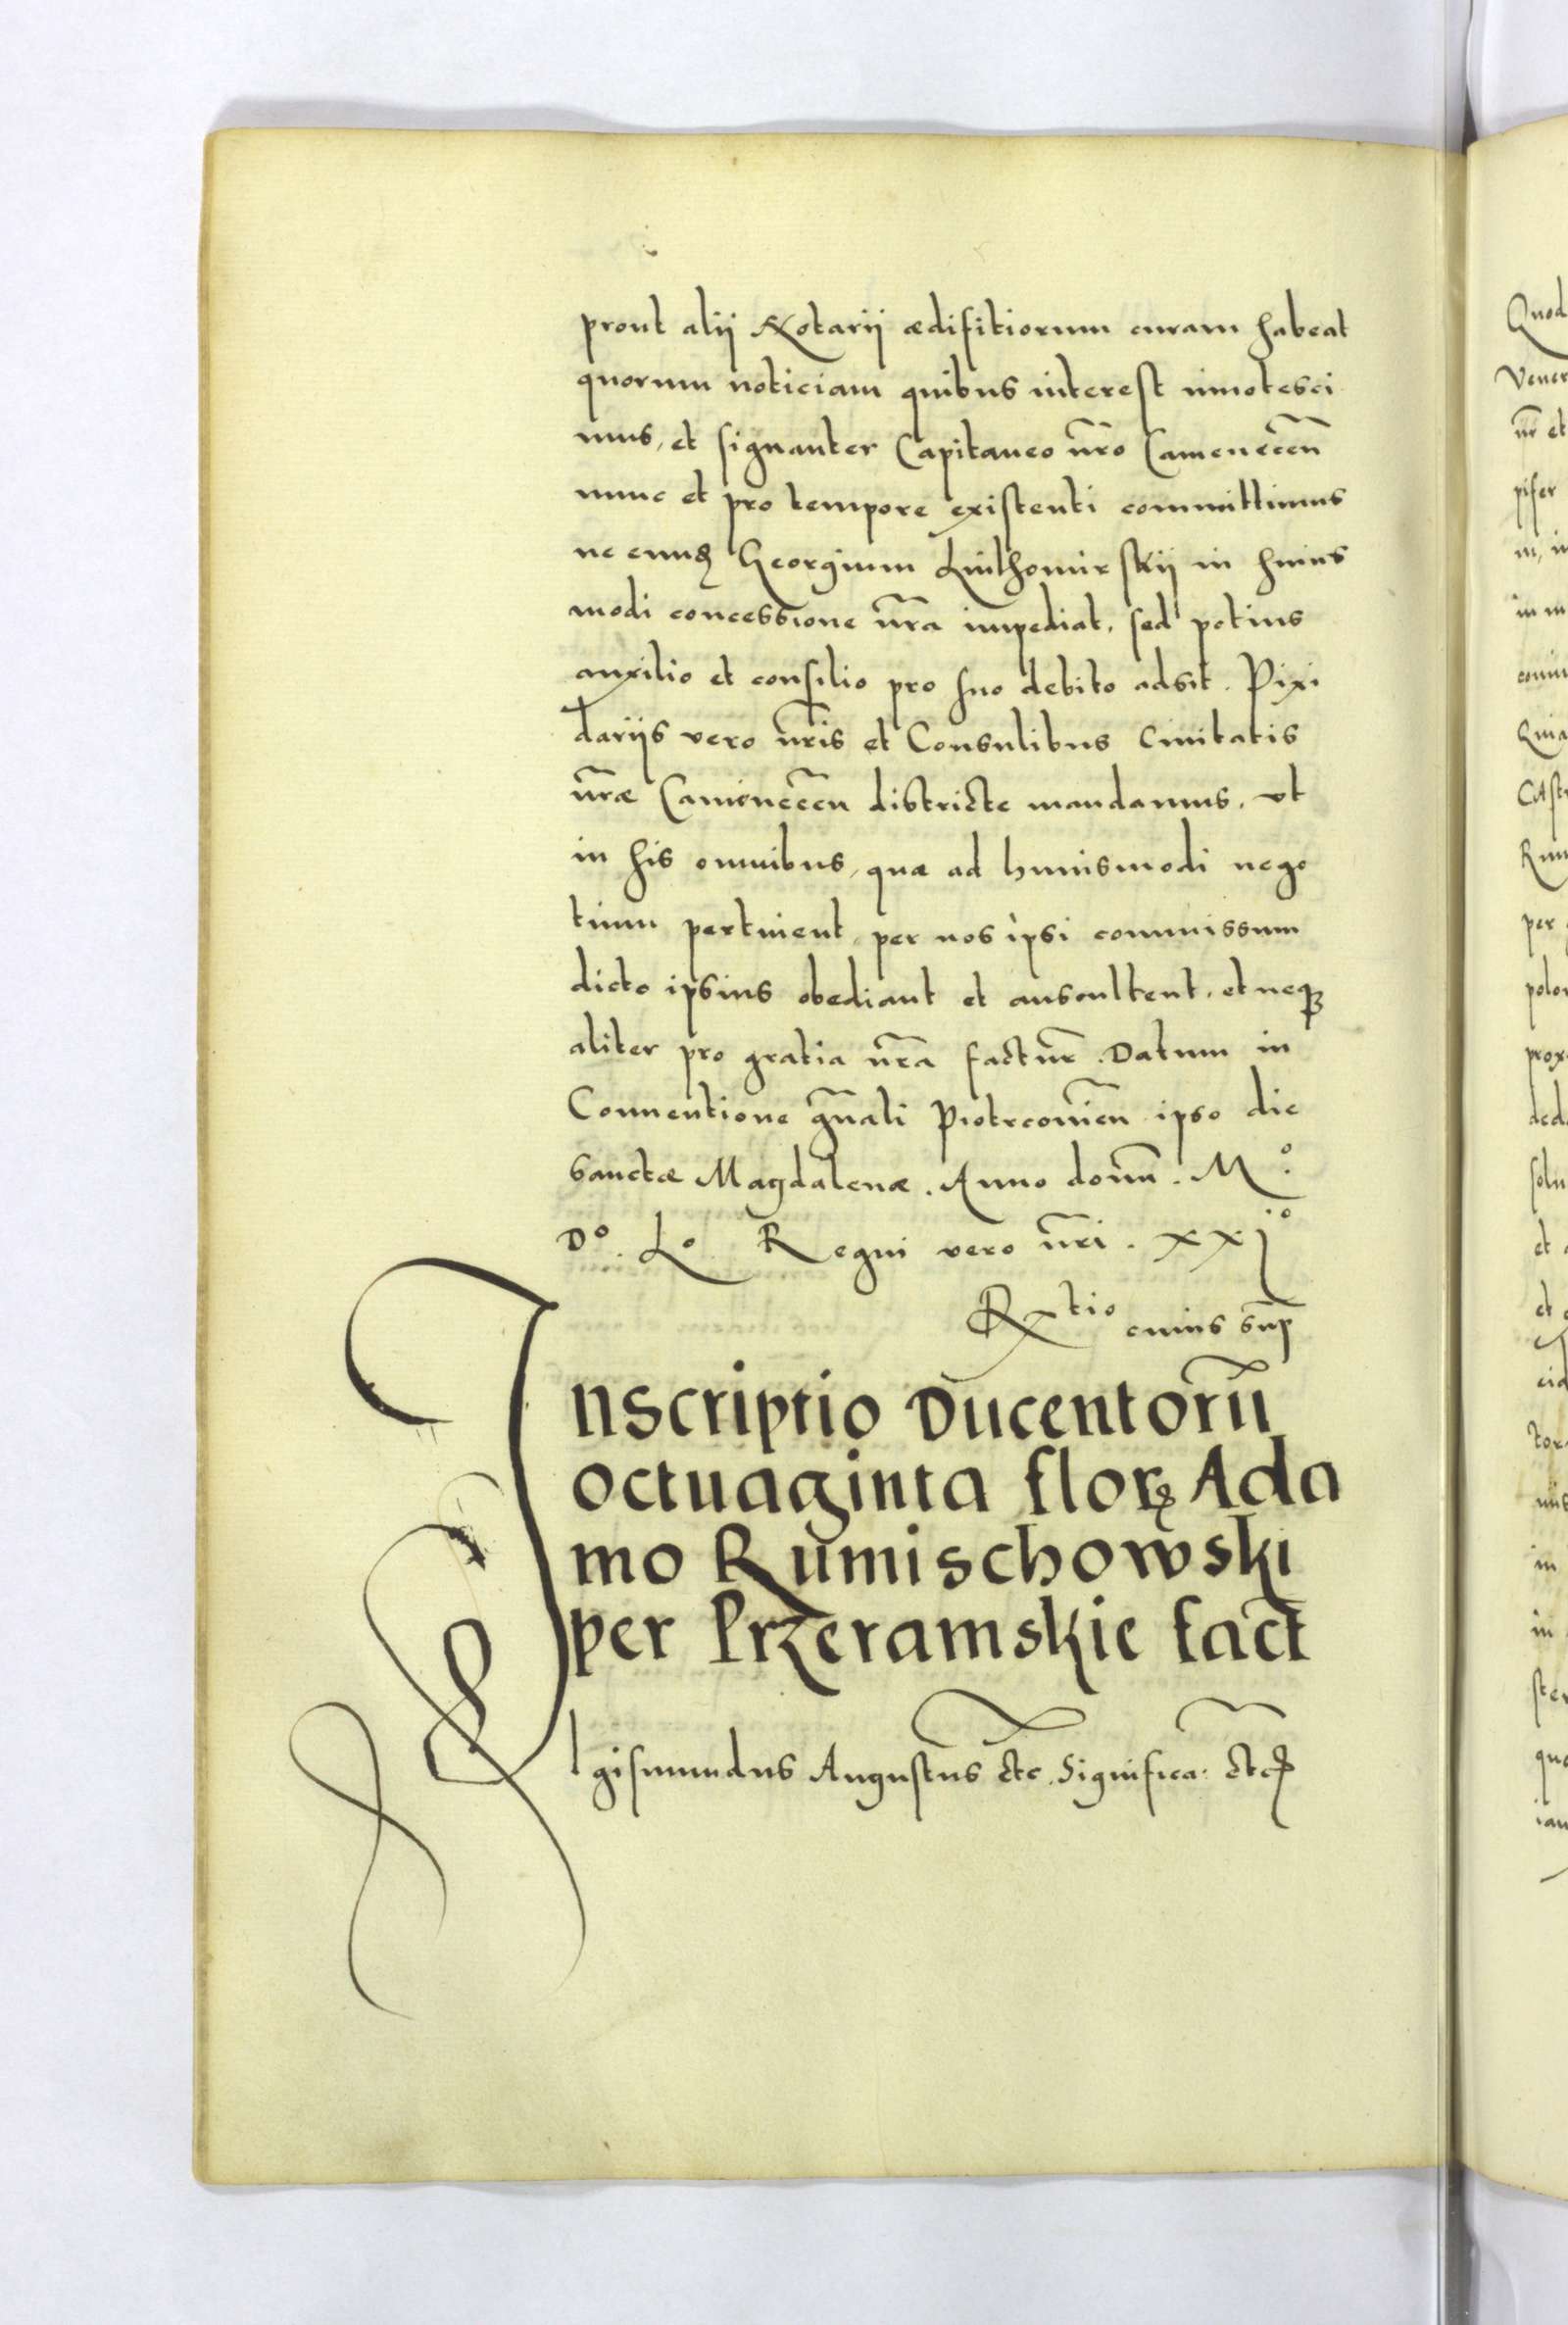 prout alij Notarij ædifitiorum curam habeat
quorum noticiam quibus interest innotesci
mus, et signanter Capitaneo nr̃o Camenecen̄
nunc et pro tempore existenti committimus
ne eundꝫ Georgium Luthomirskij in huius
modi concessione nr̃a impediat, sed potius
auxilio et consilio pro suo debito adsit. Pixi
darijs vero nr̃is et Consulibus Ciuitatis
nr̃æ Camenecen̄ districte mandamus, vt
in his omnibus, quæ ad huiusmodi nego
tium pertinent, per nos ipsi commissum
dicto ipsius obediant et auscultent, et neqꝫ
aliter pro gratia nr̃a factur̃. Datum in
Conuentione gn̄ali Piotrcouien̄ ipso die
Sanctæ Magdalenæ. Anno domī. Mº.
Dº. Lº Regni vero nr̃i. xxjº
Rtio cuius sup̄
Inscriptio Ducentorū
octuaginta florꝝ Ada
mo Rumischowski
per Przeramskie fact
Sigismundus Augustus etc. Significa: etc
Quod
Vener
nr̃ et
per
polon
proxi
et
et
in
in